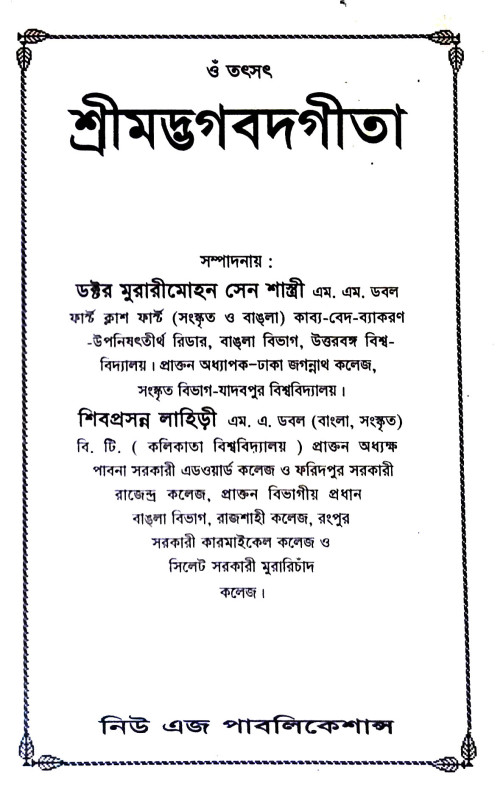 ওঁ তৎসৎ
শ্রীমদ্ভগবদগীতা
সম্পাদনায় :
ডক্টর মুরারীমোহন সেন শাস্ত্রী এম. এম. ডবল
ফার্স্ট ক্লাশ ফার্স্ট (সংস্কৃত ও বাঙ্লা) কাব্য-বেদ-ব্যাকরণ
-উপনিষৎতীর্থ রিডার, বাঙলা বিভাগ, উত্তরবঙ্গ বিশ্ব-
বিদ্যালয়। প্রাক্তন অধ্যাপক-ঢাকা জগন্নাথ কলেজ,
সংস্কৃত বিভাগ-যাদবপুর বিশ্ববিদ্যালয়।
শিবপ্রসন্ন লাহিড়ী এম. এ. ডবল (বাংলা, সংস্কৃত)
বি. টি. ( কলিকাতা বিশ্ববিদ্যালয় ) প্রাক্তন অধ্যক্ষ
পাবনা সরকারী এডওয়ার্ড কলেজ ও ফরিদপুর সরকারী
রাজেন্দ্র কলেজ, প্রাক্তন বিভাগীয় প্রধান
বাঙলা বিভাগ, রাজশাহী কলেজ, রংপুর
সরকারী কারমাইকেল কলেজ ও
সিলেট সরকারী মুরারিচাঁদ
কলেজ।
নিউ এজ পাবলিকেশান্স